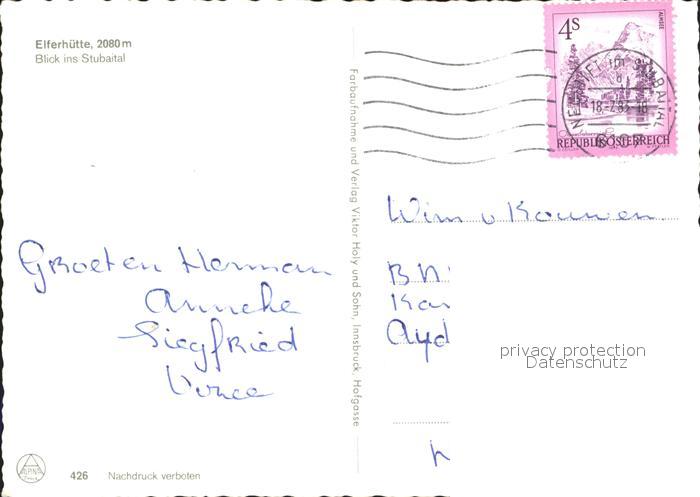 Elferhütte, 2080 m
Blick ins Stubaital
Groeten Herman
Anneke
Siegfried
426 Nachdruck verboten
ALPINA
Farbaufnahme und Verlag Viktor Holy und Sohn, Innsbruck, Hofgasse
4S
ALMSEE
NEUSTIFT IM STUBAITAL
18-7.83-18
6167
REPUBLIK ÖSTERREICH
Wim v Kouwen
privacy protection
Datenschutz